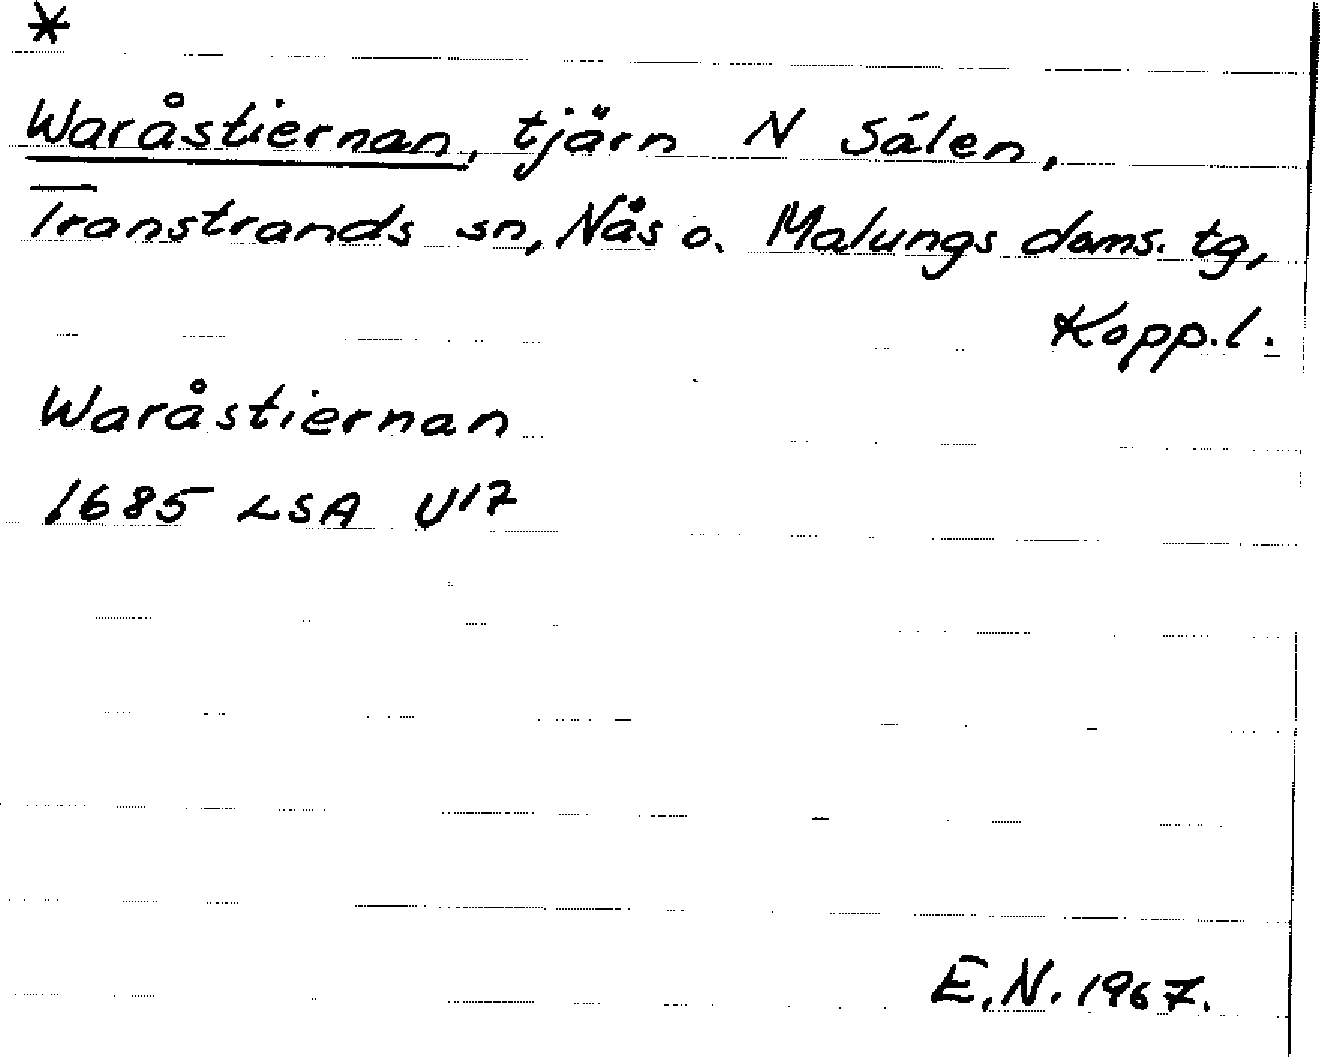 *
Waråstiernan, tjärn N Sälen,
Transtrands sn, Nås o. Malungs doms. tg,
Kopp.l.
Waråstiernan
1685 LSA U17
E.N. 1967.